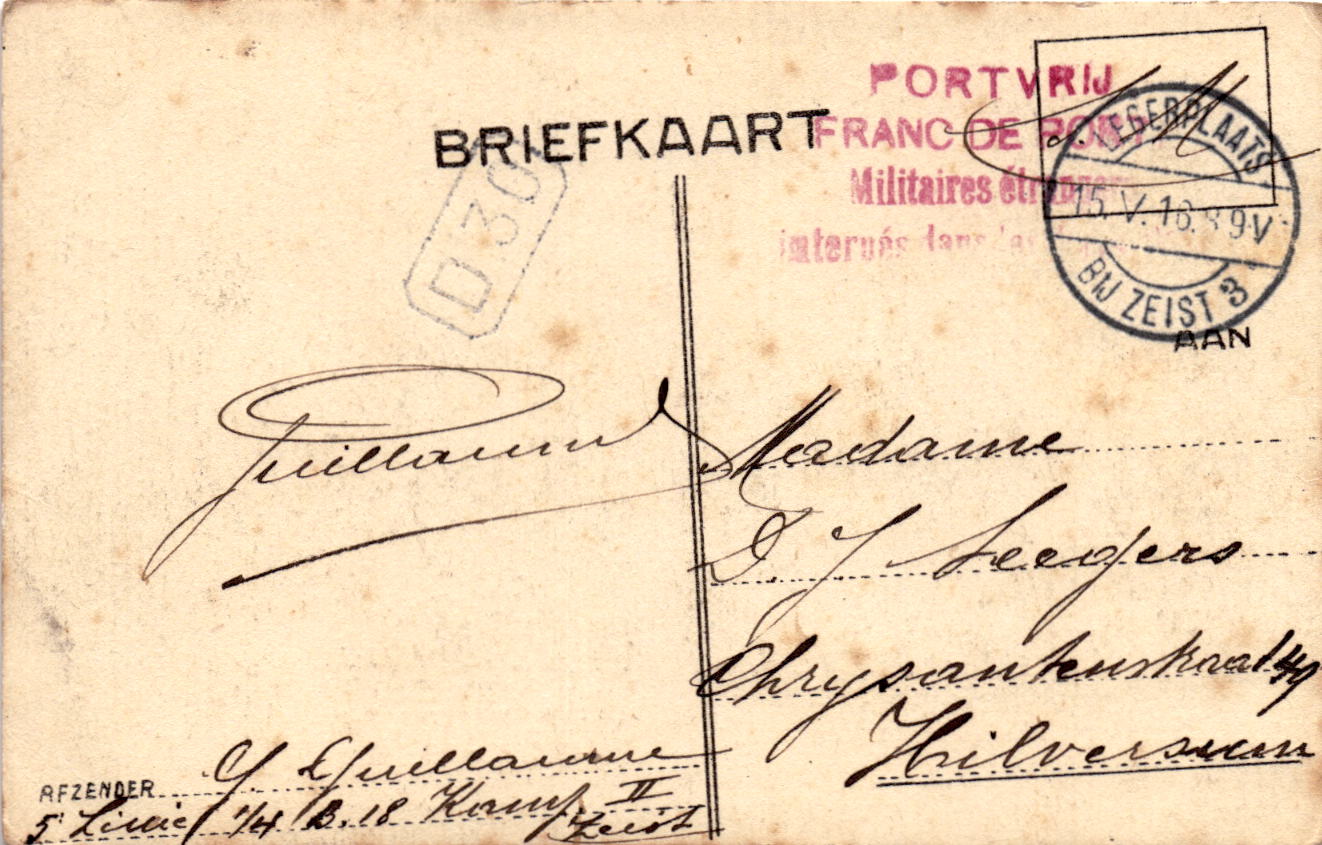 PORTVRIJ
BRIEFKAART
FRANC DE PORT
Militaires étrangers
internés dans les
LEGERPLAATS
15.V.16. 8-9V
BIJ ZEIST 3
D 30
AAN
Guillaume
Madame
D. J. Seegers
Chrysantenstraat 49
Hilversum
AFZENDER G Guillaume
5 Linie 1/4 B.18 Kamp II
Zeist